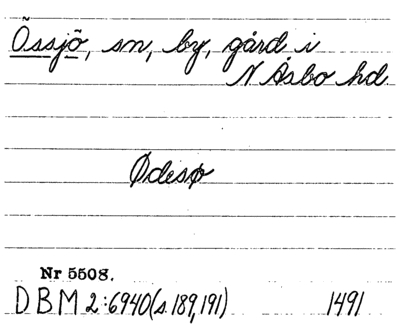 Össjö, sn, by, gård i
N Åsbo hd.
Ødesø
Nr 5508.
DBM 2:6940(s.189,191) 1491